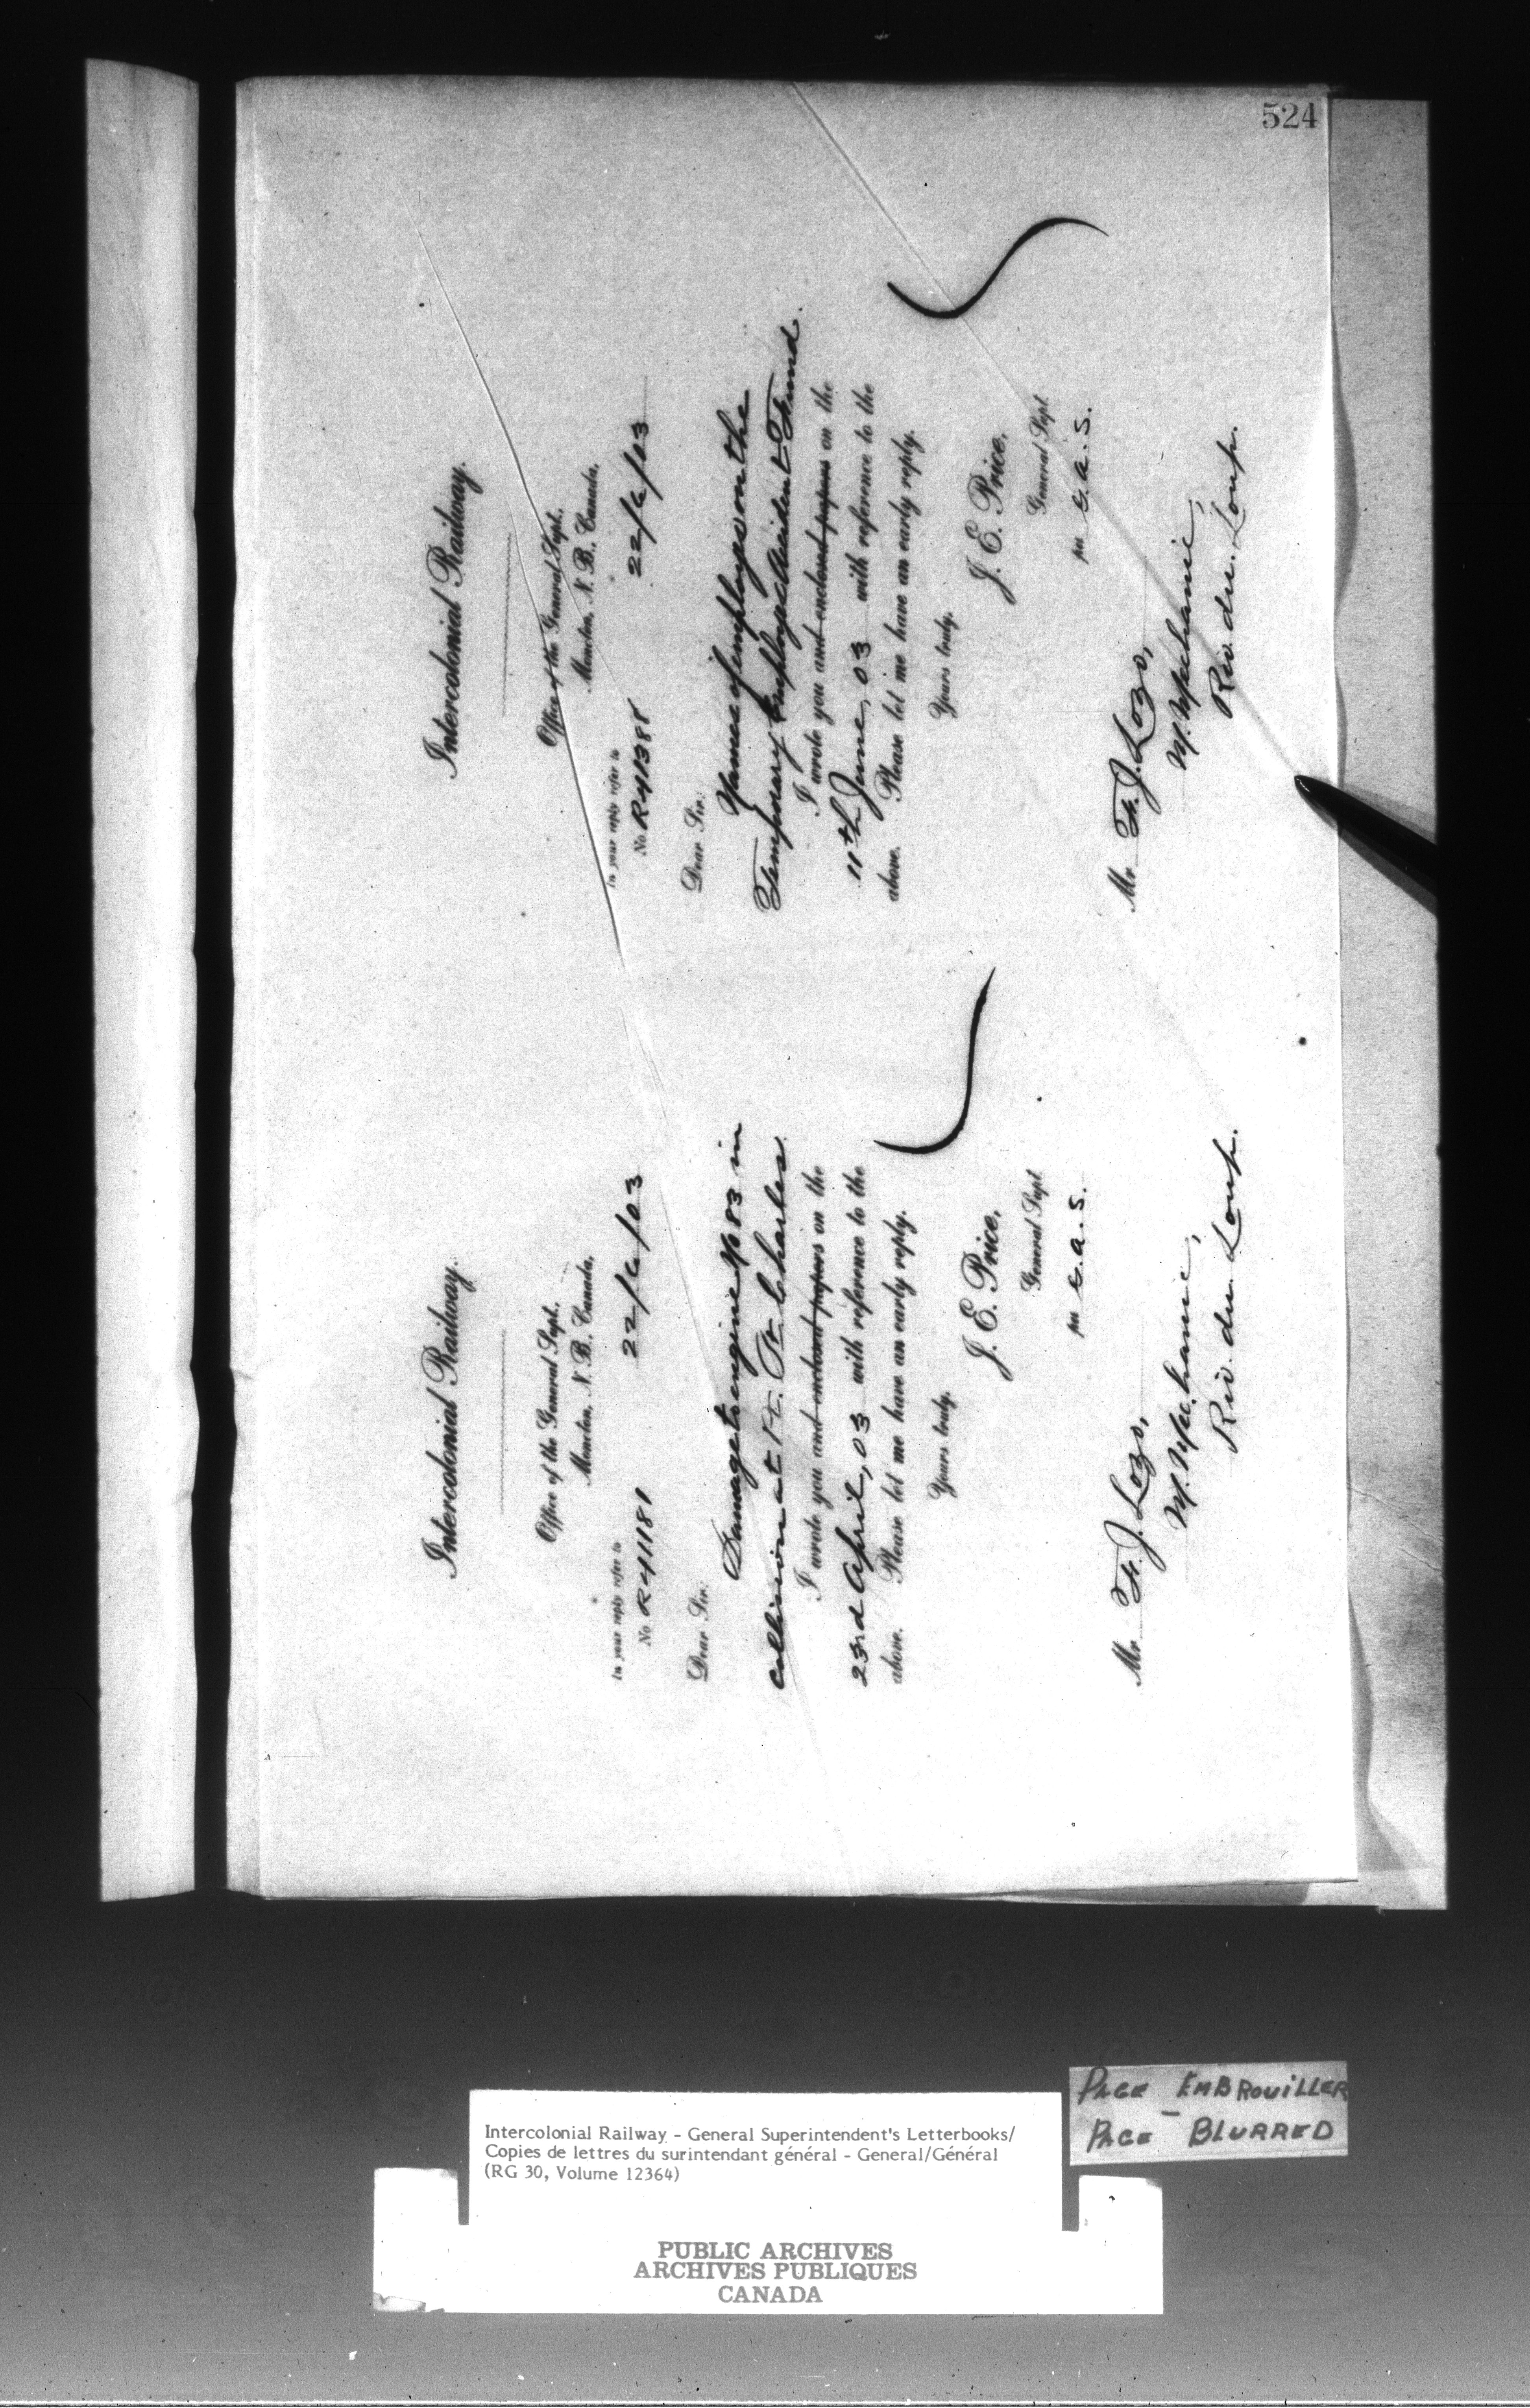 524
Intercolonial Railway.
Office of the General Supt.,
Moncton, N. B., Canada,
In your reply refer to
No R41181
22/6/03
Dear Sir:
Damage to engine No 83 in
collision at St. Charles
I wrote you and enclosed papers on the
23rd April, 03 with reference to the
above. Please let me have an early reply.
Yours truly,
J. E. Price,
General Supt
per G.A.S.
Mr. F. J. Lozo,
M. Mechanic,
Riv. du Loup.
Intercolonial Railway.
Office of the General Supt.,
Moncton, N. B., Canada,
In your reply refer to
No R41388
22/6/03
Dear Sir:
Names of employes on the
Temporary Employes Accident Fund.
I wrote you and enclosed papers on the
11th June, 03 with reference to the
above. Please let me have an early reply.
Yours truly,
J. E. Price,
General Supt
per G.A.S.
Mr. F. J. Lozo,
M. Mechanic,
Riv. du Loup.
PAGE EMBROUILLER
PAGE - BLURRED
Intercolonial Railway - General Superintendent's Letterbooks/
Copies de lettres du surintendant général - General/Général
(RG 30, Volume 12364)
PUBLIC ARCHIVES
ARCHIVES PUBLIQUES
CANADA